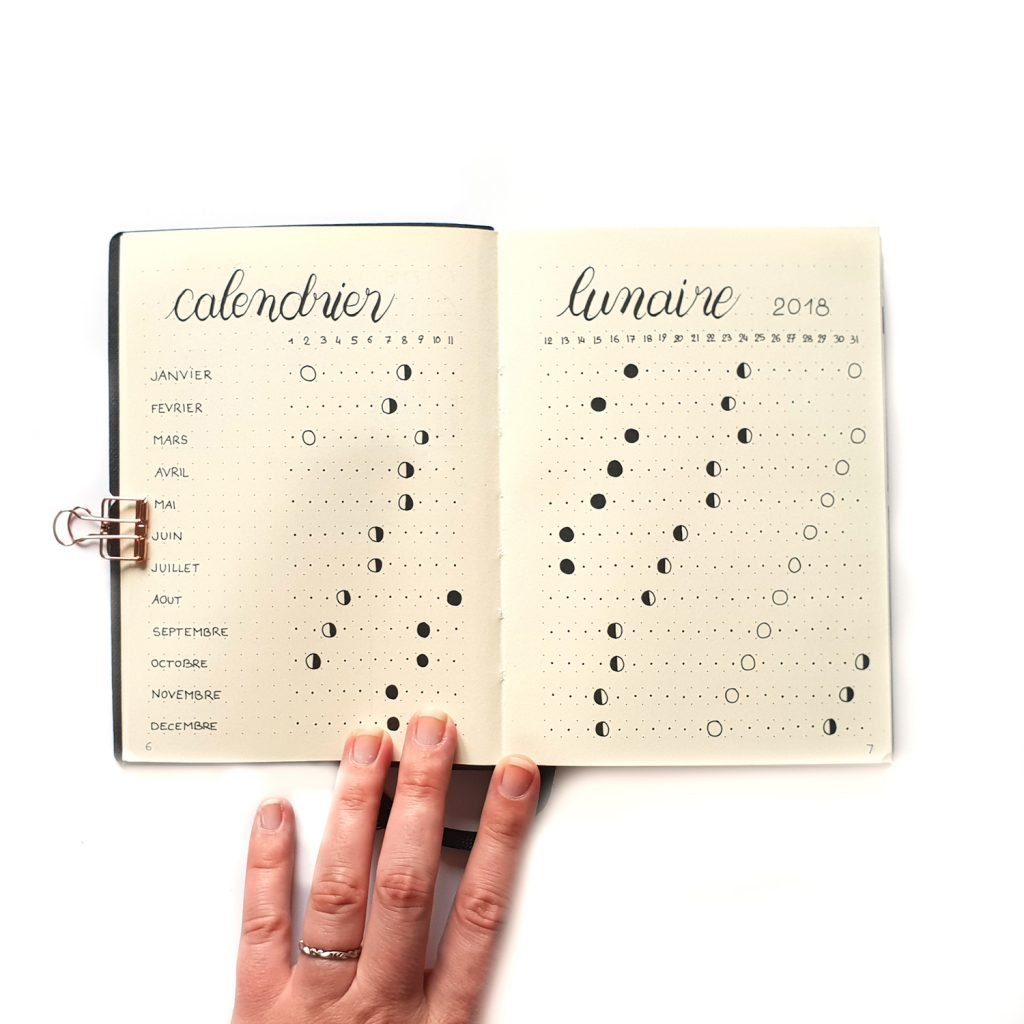 calendrier lunaire 2018
1 2 3 4 5 6 7 8 9 10 11 12 13 14 15 16 17 18 19 20 21 22 23 24 25 26 27 28 29 30 31
JANVIER
FEVRIER
MARS
AVRIL
MAI
JUIN
JUILLET
AOUT
SEPTEMBRE
OCTOBRE
NOVEMBRE
DECEMBRE
6 7